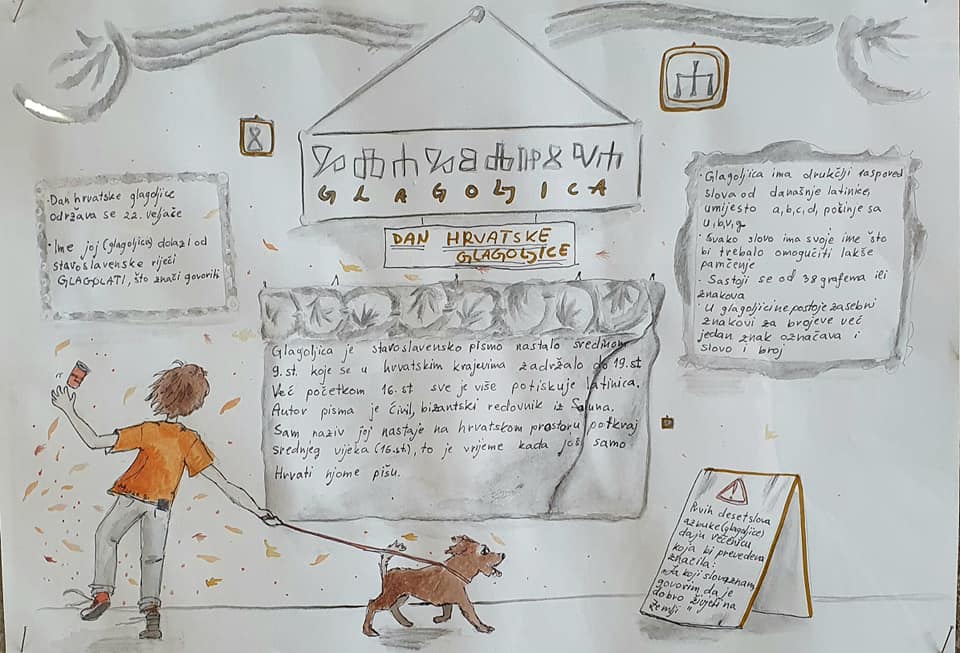 GLAGOLJICA
DAN HRVATSKE
GLAGOLJICE
• Dan hrvatske glagoljice
održava se 22. veljače
• Ime joj (glagoljica) dolazi od
staroslavenske riječi
GLAGOLATI, što znači govoriti
• Glagoljica ima drukčiji raspored
slova od današnje latinice,
umijesto a,b,c,d, počinje sa
a,b,v,g
• Svako slovo ima svoje ime što
bi trebalo omogućiti lakše
pamćenje
• Sastoji se od 38 grafema ili
znakova
• U glagoljici ne postoje zasebni
znakovi za brojeve već
jedan znak označava i
slovo i broj
Glagoljica je staroslavensko pismo nastalo sredinom
9.st. koje se u hrvatskim krajevima zadržalo do 19.st
Već početkom 16.st sve je više potiskuje latinica.
Autor pisma je Ćiril, bizantski redovnik iz Soluna.
Sam naziv joj nastaje na hrvatskom prostoru potkraj
srednjeg vijeka (16.st), to je vrijeme kada još samo
Hrvati njome pišu.
Prvih deset slova
azbuke (glagoljice)
daju rečenicu
koja bi prevedena
značila:
„Ja koji slova znam
govorim da je
dobro živjeti na
zemlji"